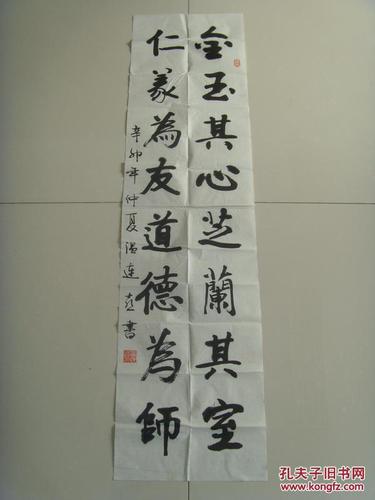 金玉其心芝蘭其室
仁義為友道德為師
辛卯年仲夏温連喜書
孔夫子旧书网
www.kongfz.com